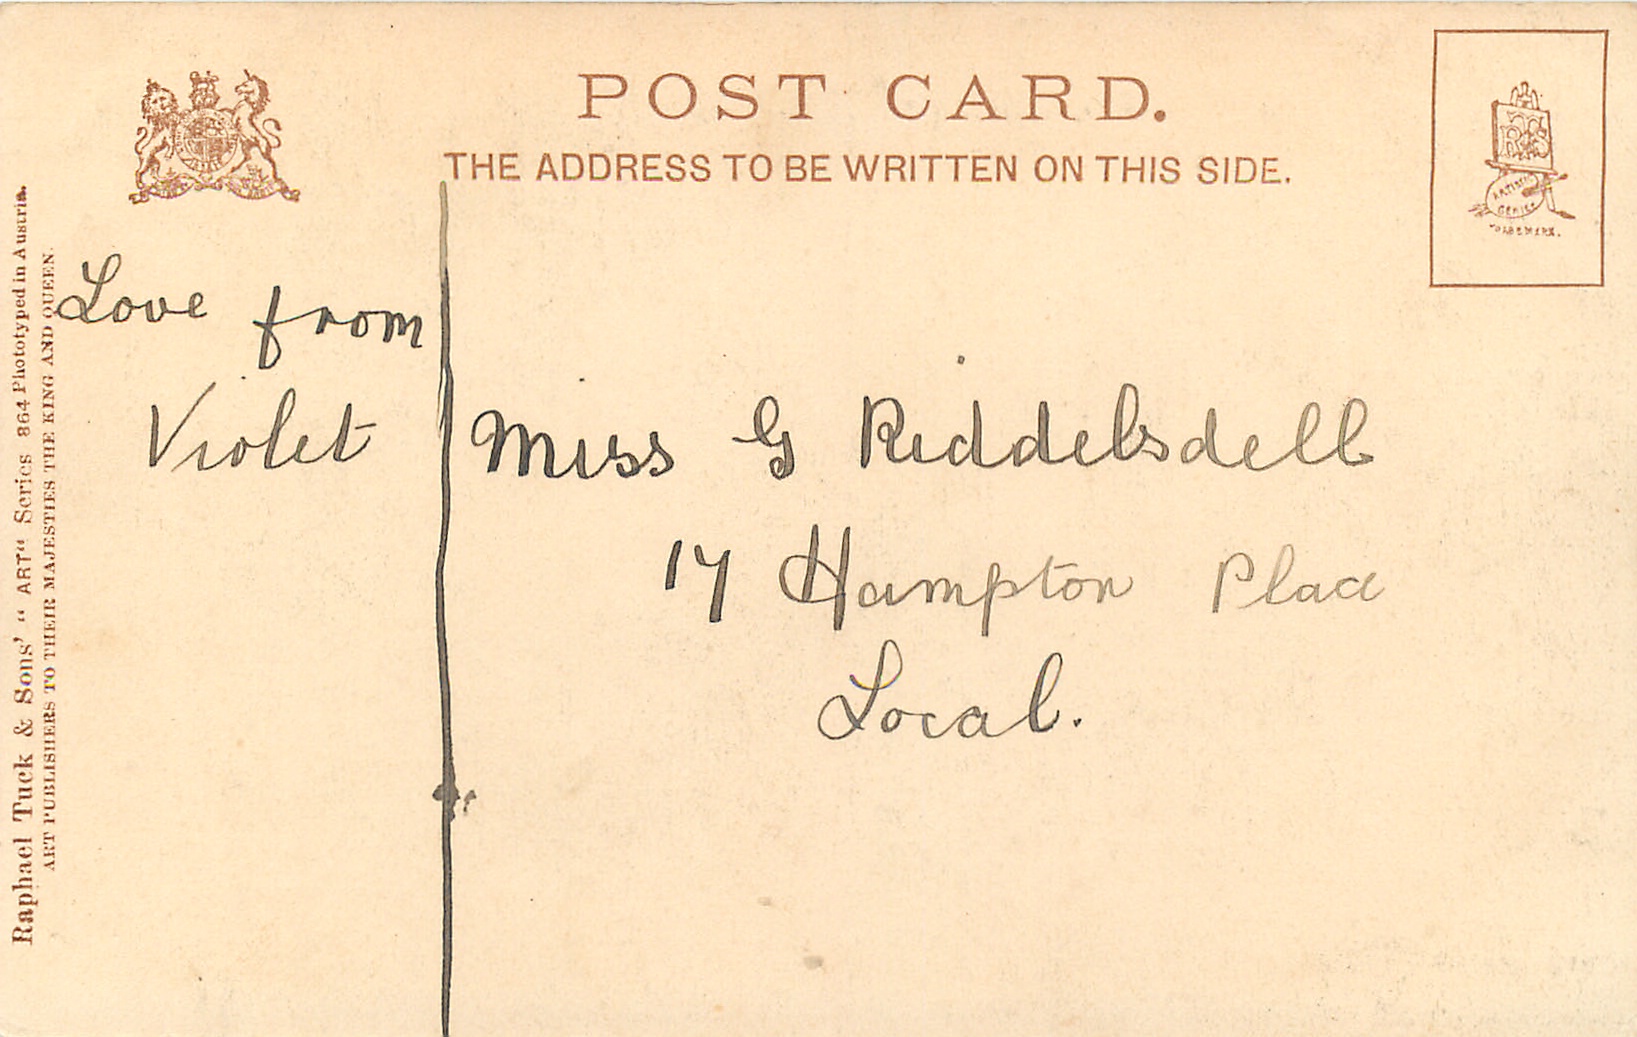 POST CARD.
THE ADDRESS TO BE WRITTEN ON THIS SIDE.
Raphael Tuck & Sons' “ ART“ Series 864 Phototyped in Austria.
ART PUBLISHERS TO THEIR MAJESTIES THE KING AND QUEEN.
Love from
Violet
Miss G Riddelsdell
17 Hampton Place
Local.
ARTISTIC
SERIES
TRADE MARK.